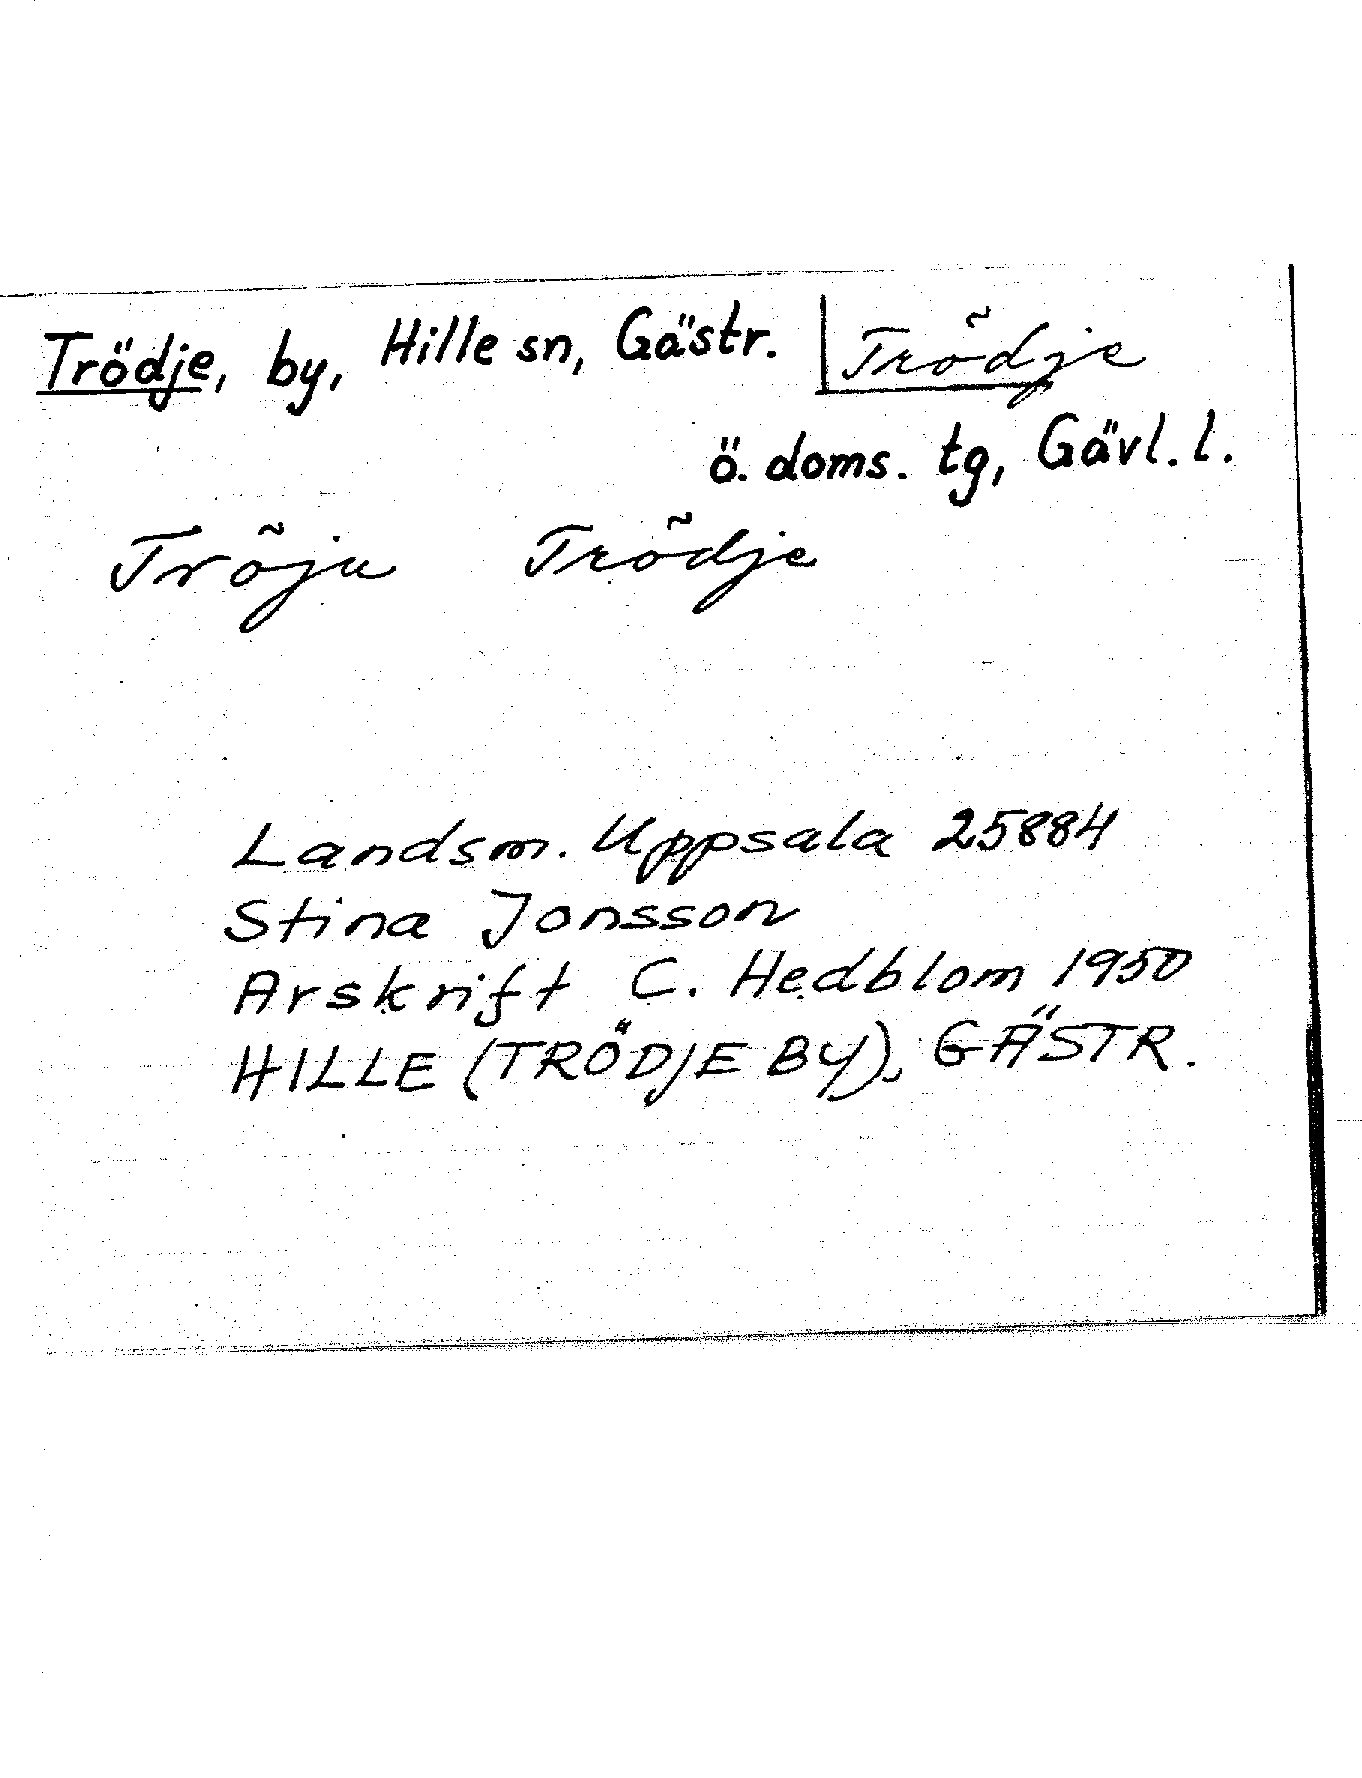 Trödje, by, Hille sn, Gästr. Trõdje
ö. doms. tg, Gävl. l.
Trõju Trõdje
Landsm. Uppsala 25884
Stina Jonsson
Arskrift C. Hedblom 1950
HILLE (TRÖDJE BY), GÄSTR.